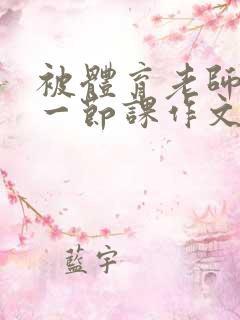 被體育老師
一節課作文
藍宇